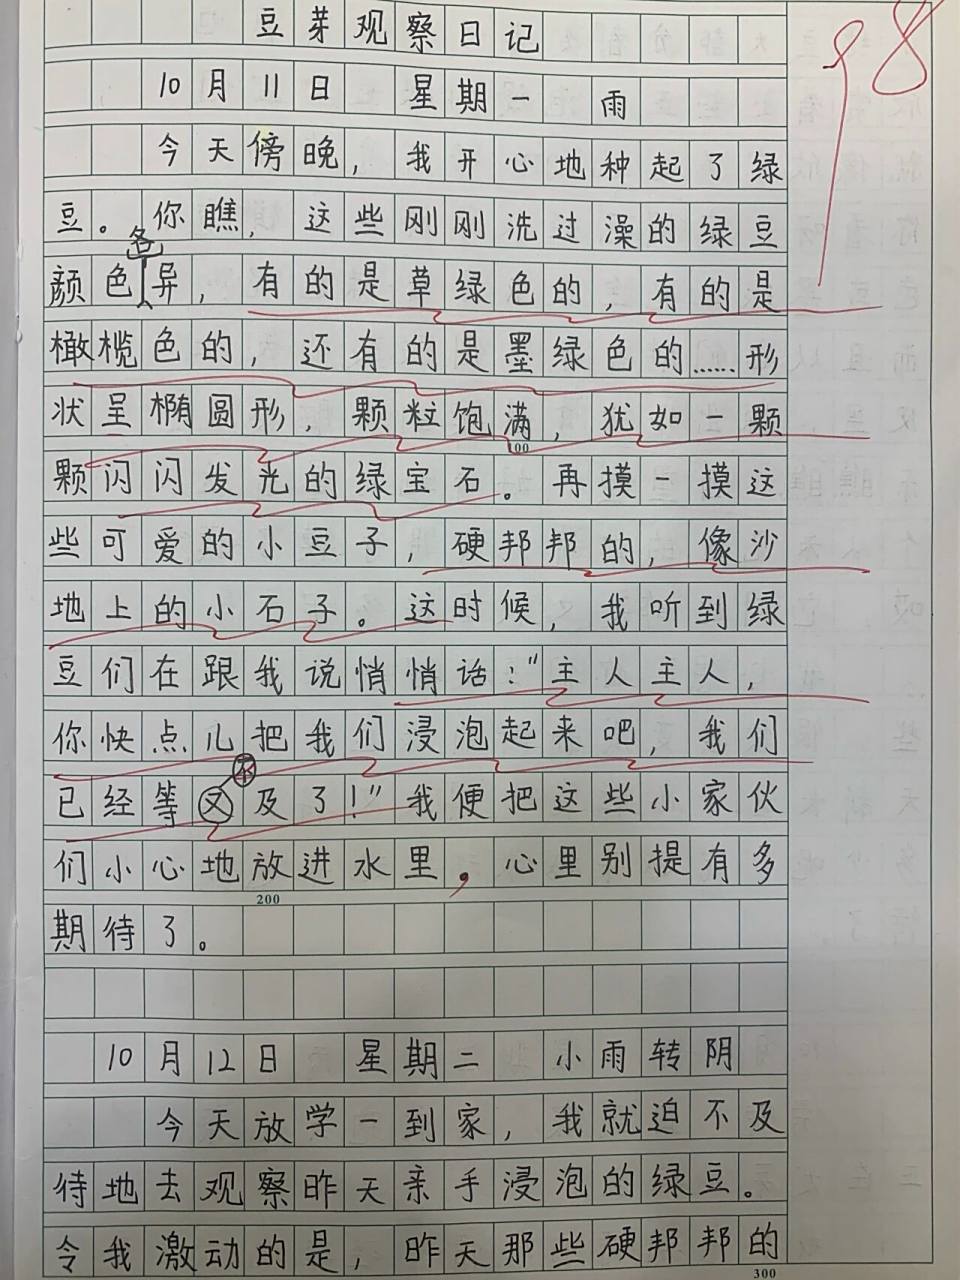 豆芽观察日记
98
10月11日 星期一 雨
今天傍晚，我开心地种起了绿
豆。你瞧，这些刚刚洗过澡的绿豆
颜色各异，有的是草绿色的，有的是
橄榄色的，还有的是墨绿色的……形
状呈椭圆形，颗粒饱满，犹如一颗
100
颗闪闪发光的绿宝石。再摸一摸这
些可爱的小豆子，硬邦邦的，像沙
地上的小石子。这时候，我听到绿
豆们在跟我说悄悄话："主人主人，
你快点儿把我们浸泡起来吧，我们
已经等不及了！"我便把这些小家伙
们小心地放进水里，心里别提有多
200
期待了。
10月12日 星期二 小雨转阴
今天放学一到家，我就迫不及
待地去观察昨天亲手浸泡的绿豆。
令我激动的是，昨天那些硬邦邦的
300